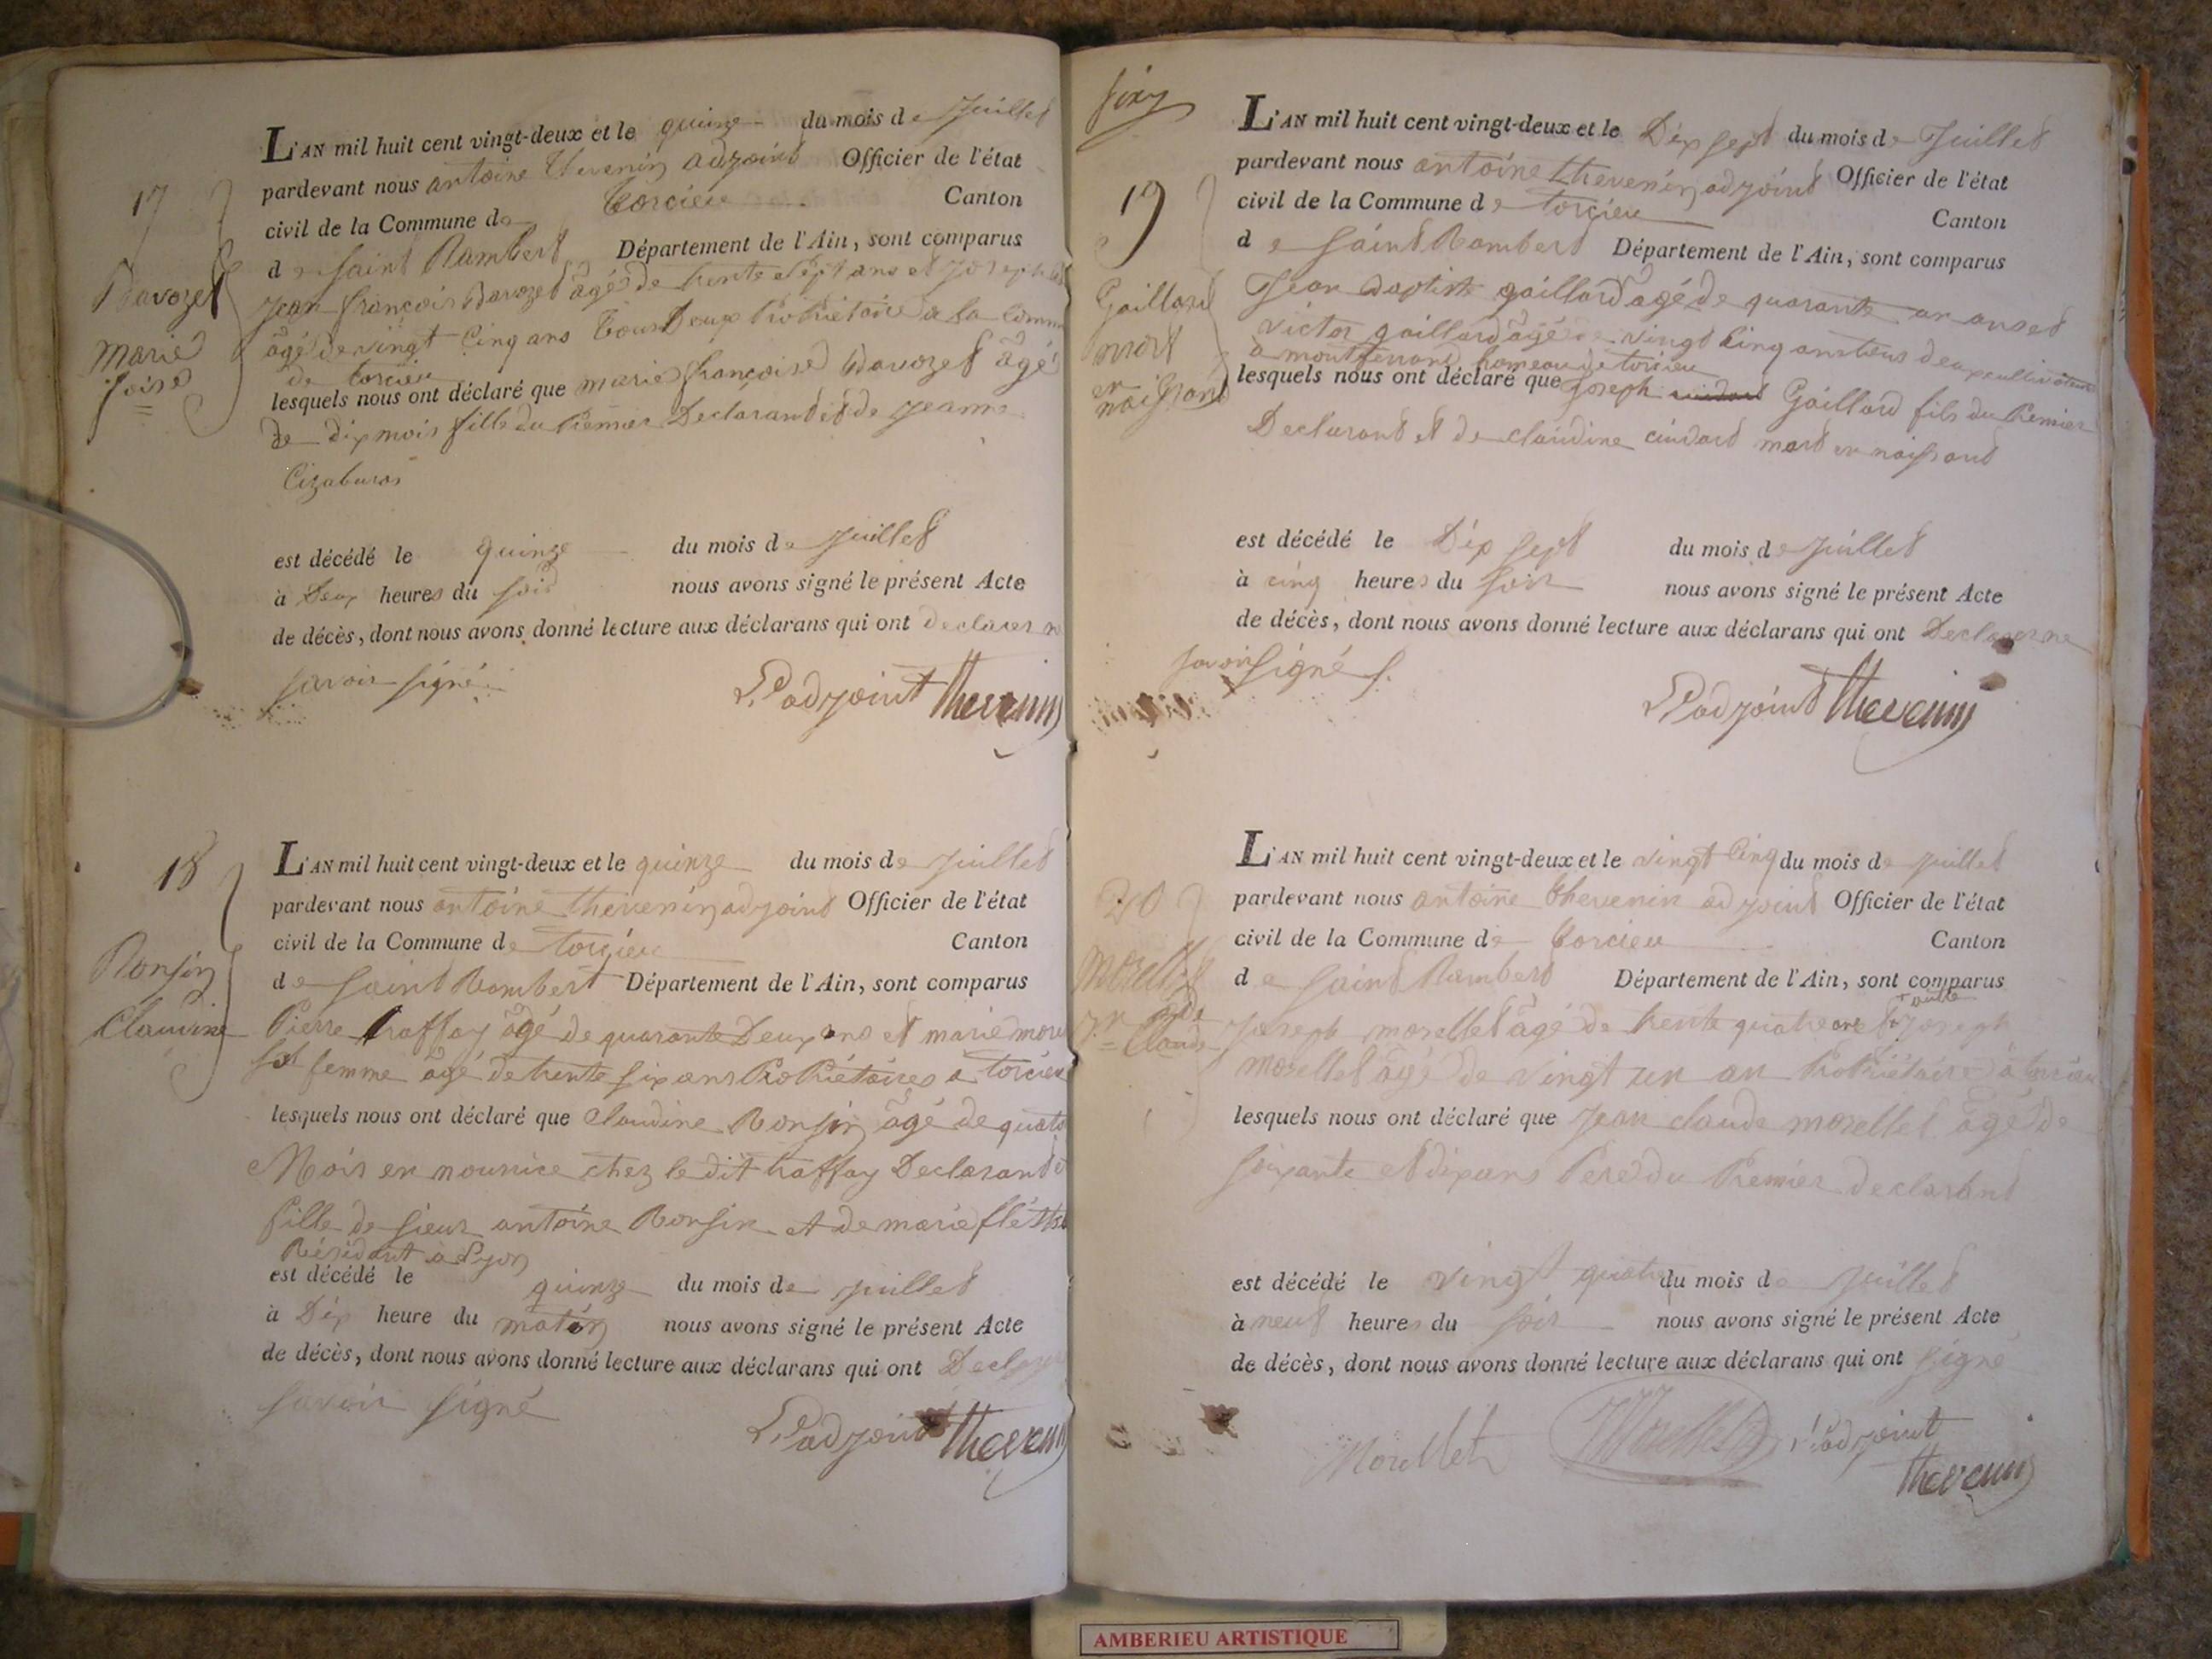 17
Ravozet
Marie
foise
L'AN mil huit cent vingt-deux et le quinze du mois de Juillet
pardevant nous antoine thevenin adjoint Officier de l'état
civil de la Commune de torcieu Canton
de saint Rambert Département de l'Ain, sont comparus
jean françois Ravozet âgé de trente sept ans et joseph
âgé de vingt Cinq ans tous Deux Propriétaire a la Comm
de torcieu
lesquels nous ont déclaré que marie françoise Ravozet âgé
De dix mois fille du Premier Declarant et de jeanne
Cizaburos
est décédé le quinze du mois de juillet
à Deux heures du soir nous avons signé le présent Acte
de décès, dont nous avons donné lecture aux déclarans qui ont declarer ne
savoir signé
L'adjoint thevenin
18
Ronsin
Claudine
L'AN mil huit cent vingt-deux et le quinze du mois de juillet
pardevant nous antoine thevenin adjoint Officier de l'état
civil de la Commune de torcieu Canton
de saint Rambert Département de l'Ain, sont comparus
Pierre traffay âgé de quarante Deux ans et marie more
femme âgé de trente six ans Propriétaires a torcieu
lesquels nous ont déclaré que Claudine Ronsin âgé de quato
Mois en nourice chez le dit traffay Declarant et
fille de sieur antoine Ronsin et de marie
Résidant a Lyon
est décédé le quinze du mois de juillet
à Dix heure du matin nous avons signé le présent Acte
de décès, dont nous avons donné lecture aux déclarans qui ont Declar
savoir signé
L'adjoint thevenin
19
Gaillard
mort
en
naissant
L'AN mil huit cent vingt-deux et le Dix sept du mois de Juillet
pardevant nous antoine thevenin adjoint Officier de l'état
civil de la Commune de torcieu Canton
de saint Rambert Département de l'Ain, sont comparus
Jean Baptiste gaillard âgé de quarante un ans et
victor gaillard âgé de vingt Cinq ans tous deux cultivateurs
a montferrand hameau de torcieu
lesquels nous ont déclaré que joseph Gaillard fils du Premier
Declarant et de claudine cuidard mort en naissant
est décédé le Dix sept du mois de juillet
à cinq heures du soir nous avons signé le présent Acte
de décès, dont nous avons donné lecture aux déclarans qui ont Declarer ne
savoir signé
L'adjoint thevenin
20
Morellet
jn
Claude
L'AN mil huit cent vingt-deux et le vingt Cinq du mois de juillet
pardevant nous antoine thevenin adjoint Officier de l'état
civil de la Commune de torcieu Canton
de saint Rambert Département de l'Ain, sont comparus
joseph morellet âgé de trente quatre ans et autre joseph
morellet âgé de vingt un an Propriétaire a torcieu
lesquels nous ont déclaré que jean claude morellet âgé de
soixante et dix ans Pere du Premier declarant
est décédé le vingt quatre du mois de juillet
à neuf heures du soir nous avons signé le présent Acte
de décès, dont nous avons donné lecture aux déclarans qui ont signé
Morellet Morellet l'adjoint
thevenin
AMBERIEU ARTISTIQUE